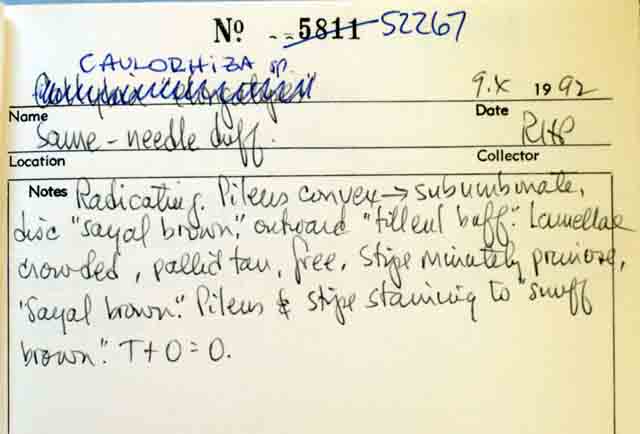 No. 5811 52267
CAULORHIZA sp.
9.X 1992
Name Date
Same - needle duff. RHP
Location Collector
Notes Radicating. Pileus convex → subumbonate,
disc "sayal brown," outward "tilleul buff." Lamellae
crowded, pallid tan, free. Stipe minutely pruinose,
"Sayal brown." Pileus & stipe staining to "snuff
brown." T+O=O.